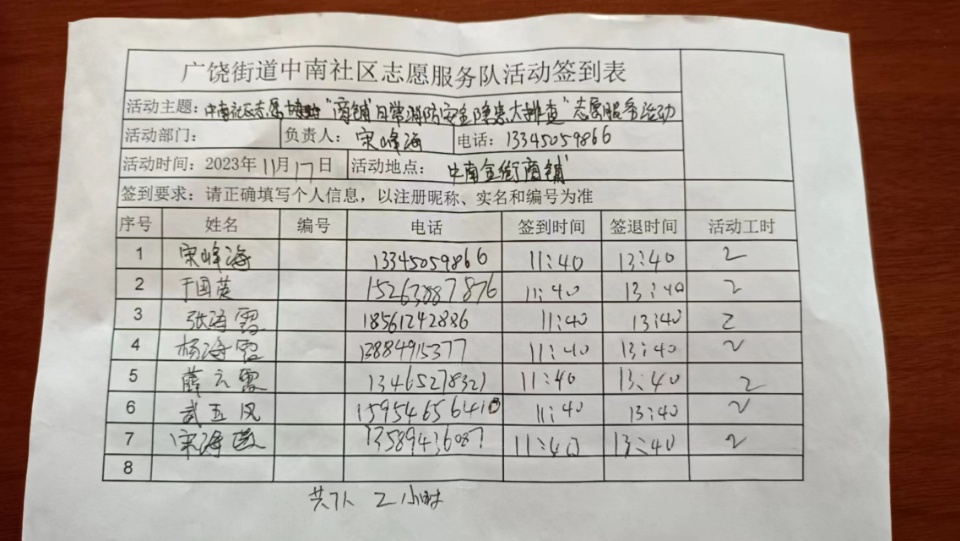 广饶街道中南社区志愿服务队活动签到表
活动主题：中南社区志愿 "商铺日常消防安全隐患大排查"志愿服务活动
活动部门： 负责人：宋峰海 电话：13345059866
活动时间：2023年11月17日 活动地点：中南金街商铺
签到要求：请正确填写个人信息，以注册昵称、实名和编号为准
序号 姓名 编号 电话 签到时间 签退时间 活动工时
1 宋峰海 13345059866 11:40 13:40 2
2 于国英 15263887876 11:40 13:40 2
3 张海霞 18561242886 11:40 13:40 2
4 杨海霞 13884915377 11:40 13:40 2
5 薛云霞 13465278321 11:40 13:40 2
6 武玉凤 11:40 13:40 2
7 宋海 13589436087 11:40 13:40 2
8
共7人 2小时